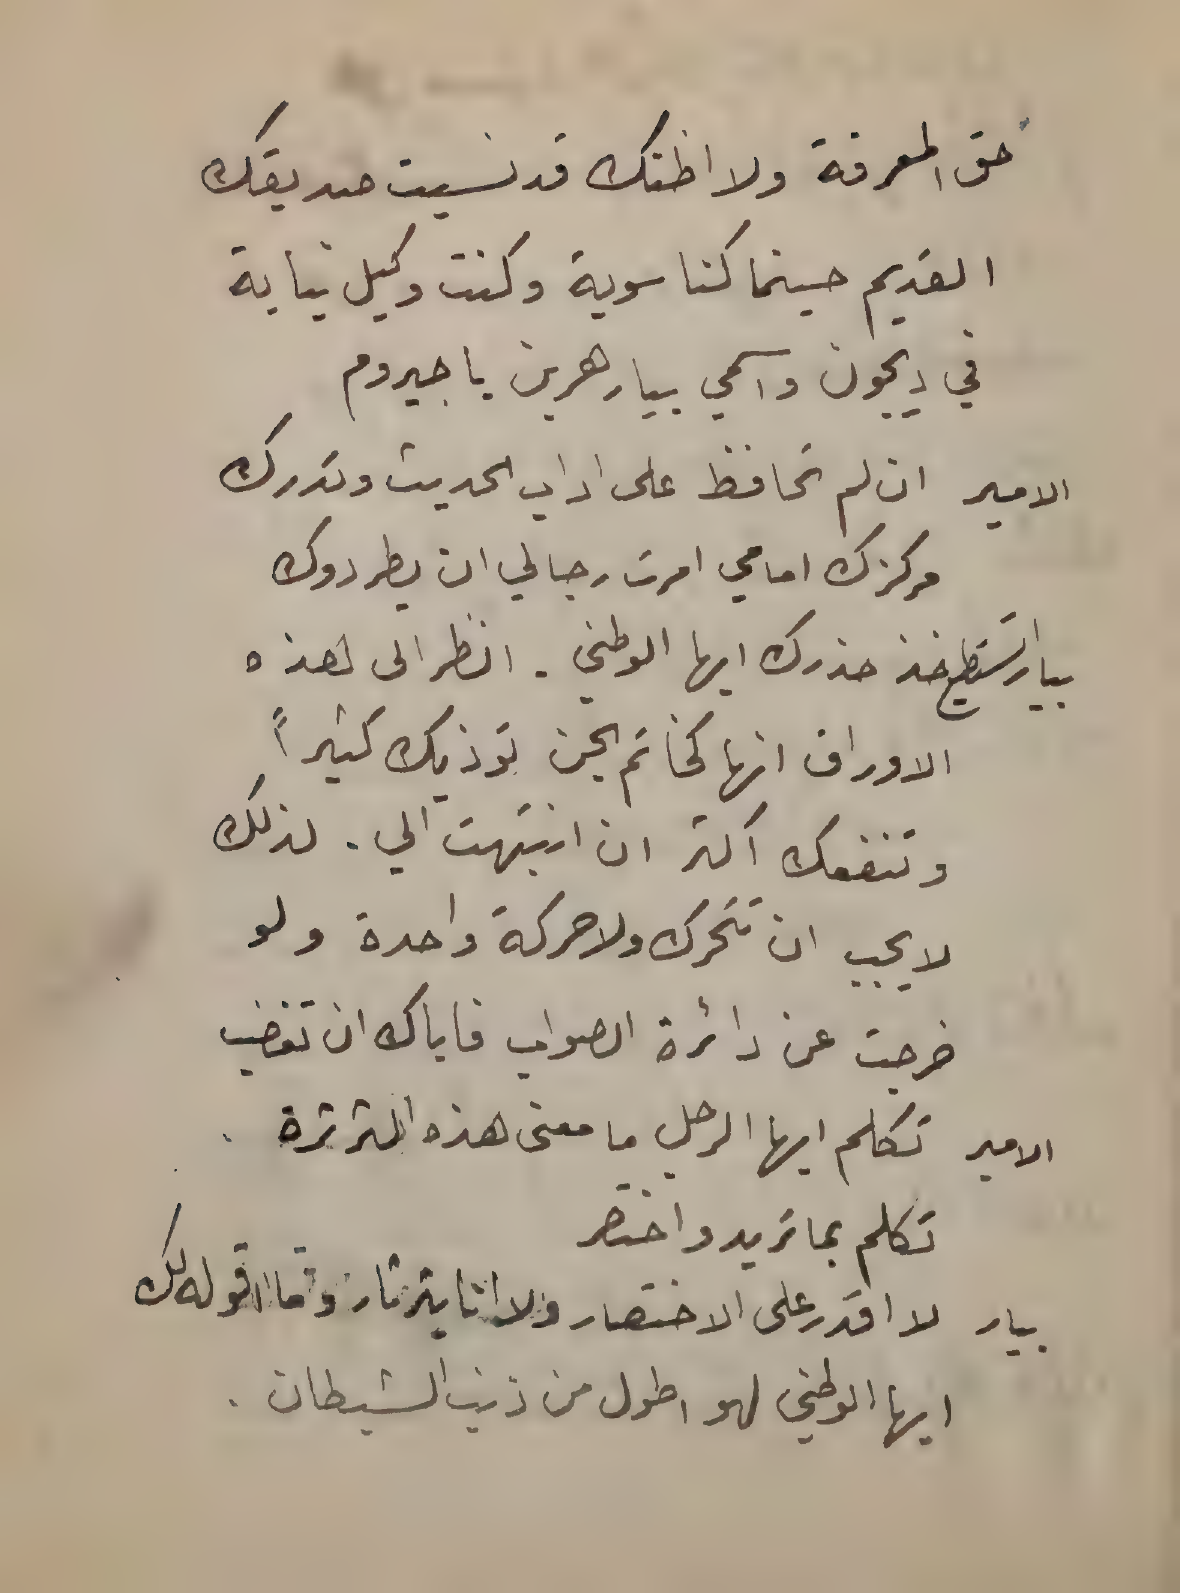 حق المعرفة ولا اظنك قد نسيت صديقك
القديم حينما كنا سوية وكنت وكيل نيابة
في ديجون واسمي بيار هرين يا جيروم
الامير ان لم تحافظ على اداب الحديث وتدرك
مركزك امامي امرت رجالي ان يطردوك
بيار خذ حذرك ايها الوطني . انظر الى هذه
الاوراق انها كخاتم الجن تؤذيك كثيراً
وتنفعك اكثر ان انتبهت الي . لذلك
لا يجب ان تتحرك ولا حركة واحدة ولو
خرجت عن دائرة الصواب فاياك ان تغضب
الامير تكلم ايها الرجل ما معنى هذه الثرثرة .
تكلم بما تريد واختصر
بيار لا اقدر على الاختصار ولا انا بثرثار وما اقوله لك
ايها الوطني لهو اطول من ذنب الشيطان .